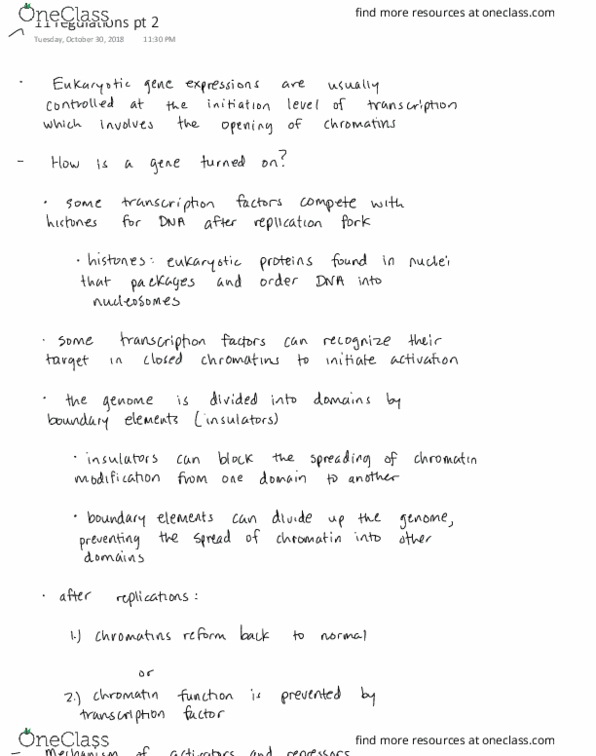 OneClass
find more resources at oneclass.com
regulations pt 2
Tuesday, October 30, 2018 11:30 PM
· Eukaryotic gene expressions are usually
controlled at the initiation level of transcription
which involves the opening of chromatins
- How is a gene turned on?
· some transcription factors compete with
histones for DNA after replication fork
· histones: eukaryotic proteins found in nuclei
that packages and order DNA into
nucleosomes
· some transcription factors can recognize their
target in closed chromatins to initiate activation
· the genome is divided into domains by
boundary elements (insulators)
· insulators can block the spreading of chromatin
modification from one domain to another
· boundary elements can divide up the genome,
preventing the spread of chromatin into other
domains
· after replications:
1.) chromatins reform back to normal
or
2.) chromatin function is prevented by
transcription factor
OneClass
find more resources at oneclass.com
- Mechanism of activators and repressors